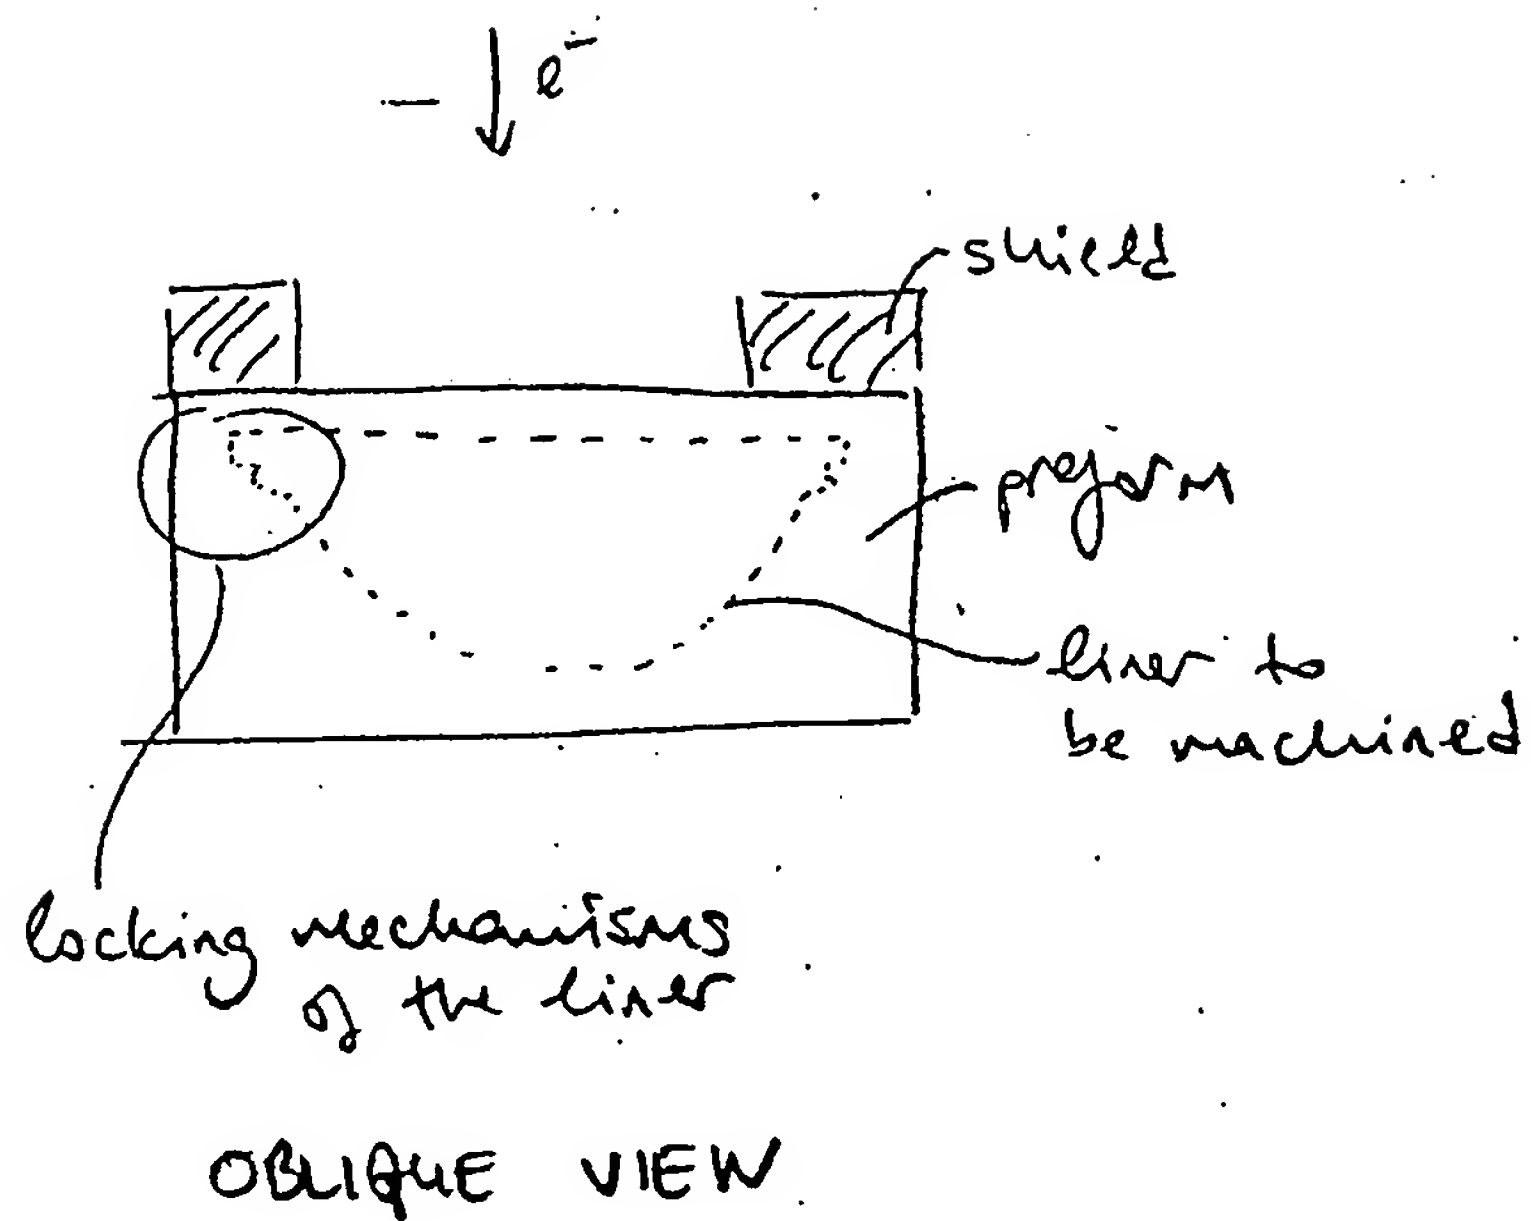 — ↓ e⁻
shield
preform
liner to
be machined
locking mechanisms
of the liner
OBLIQUE VIEW